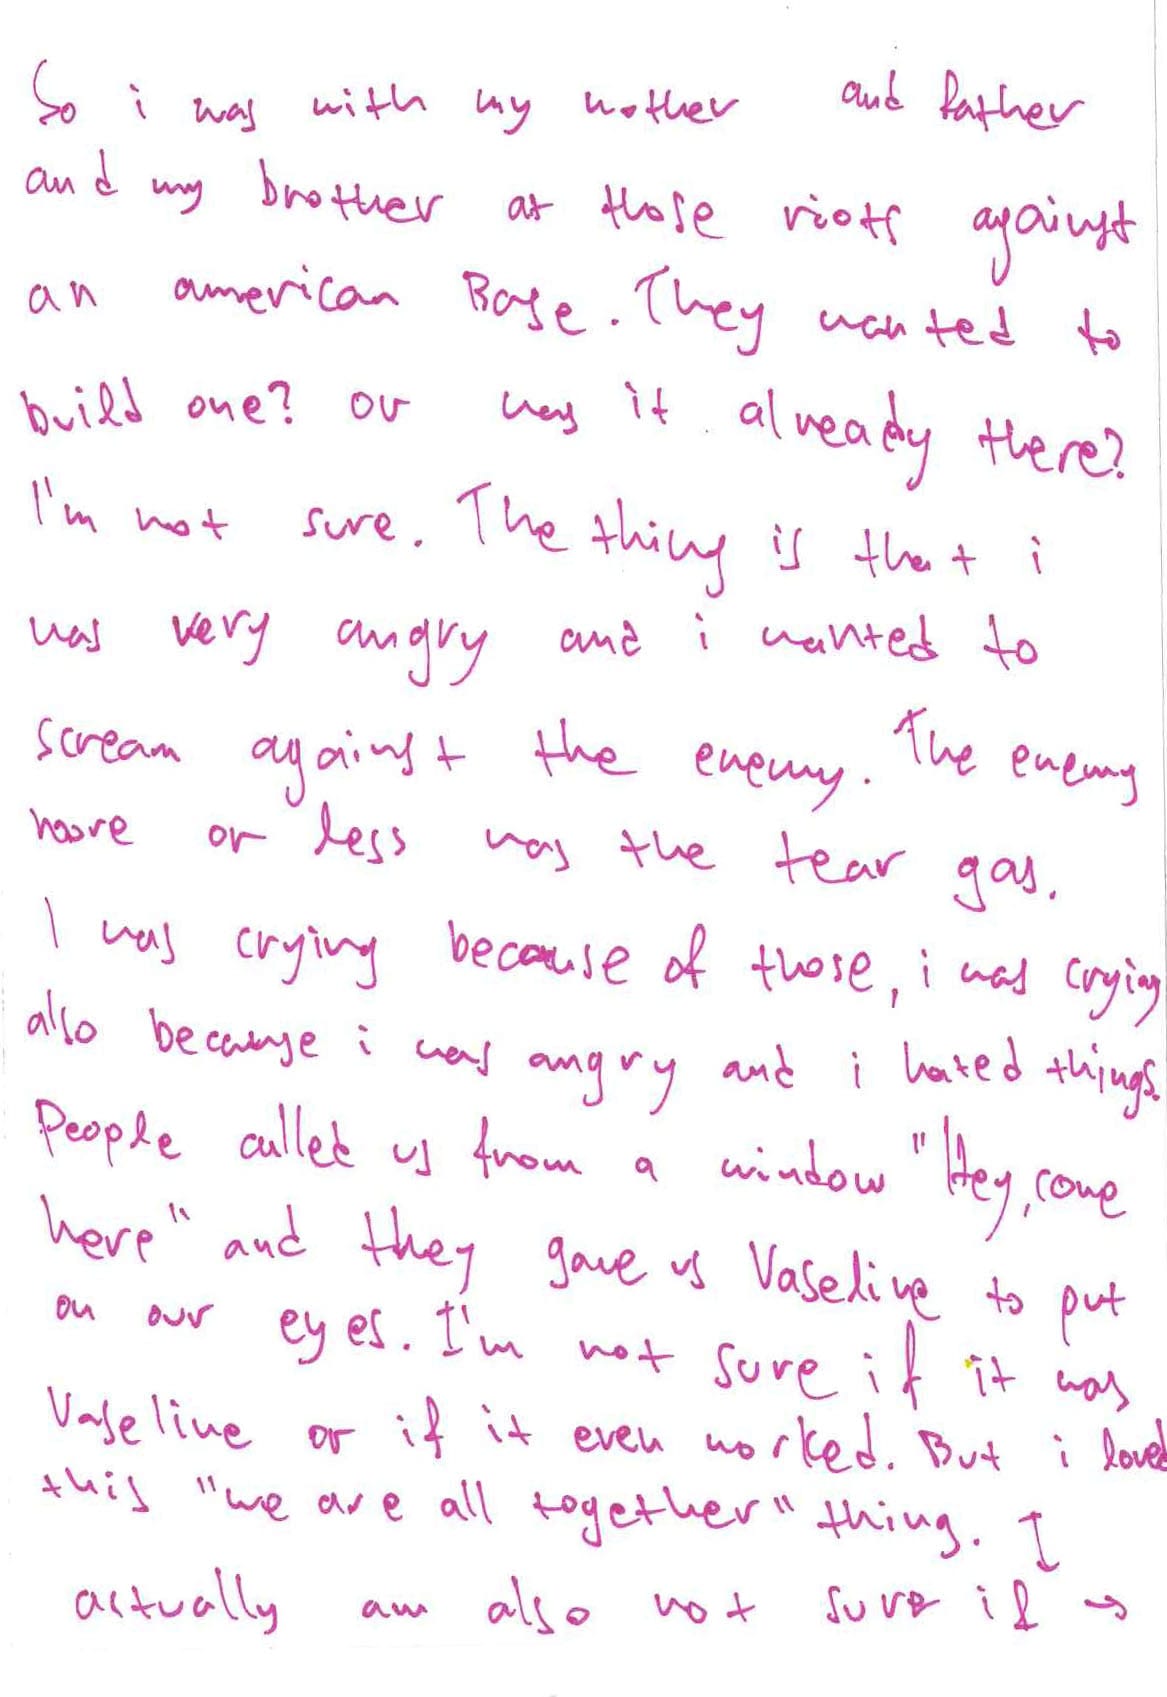 So i was with my mother and father
and my brother at those riots against
an american Base. They wanted to
build one? or was it already there?
I'm not sure. The thing is that i
was very angry and i wanted to
scream against the enemy. The enemy
more or less was the tear gas.
I was crying because of those, i was crying
also because i was angry and i hated things.
People called us from a window "Hey, come
here" and they gave us Vaseline to put
on our eyes. I'm not sure if it was
Vaseline or if it even worked. But i loved
this "we are all together" thing. I
actually am also not sure if →